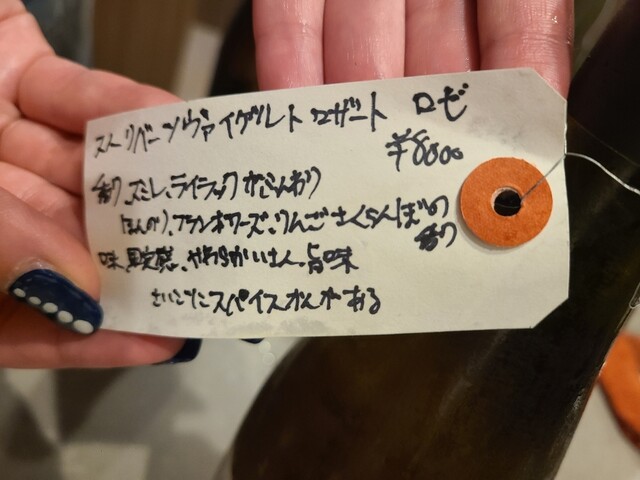 ストリベーツヴァイゲルト ロザート ロゼ
¥8000
香り、スミレ、ライラック がふんわり
ほんのり、フランボワーズ、りんご さくらんぼの
香り
味、果実感、やわらかい 旨味
さいごにスパイスかんがある